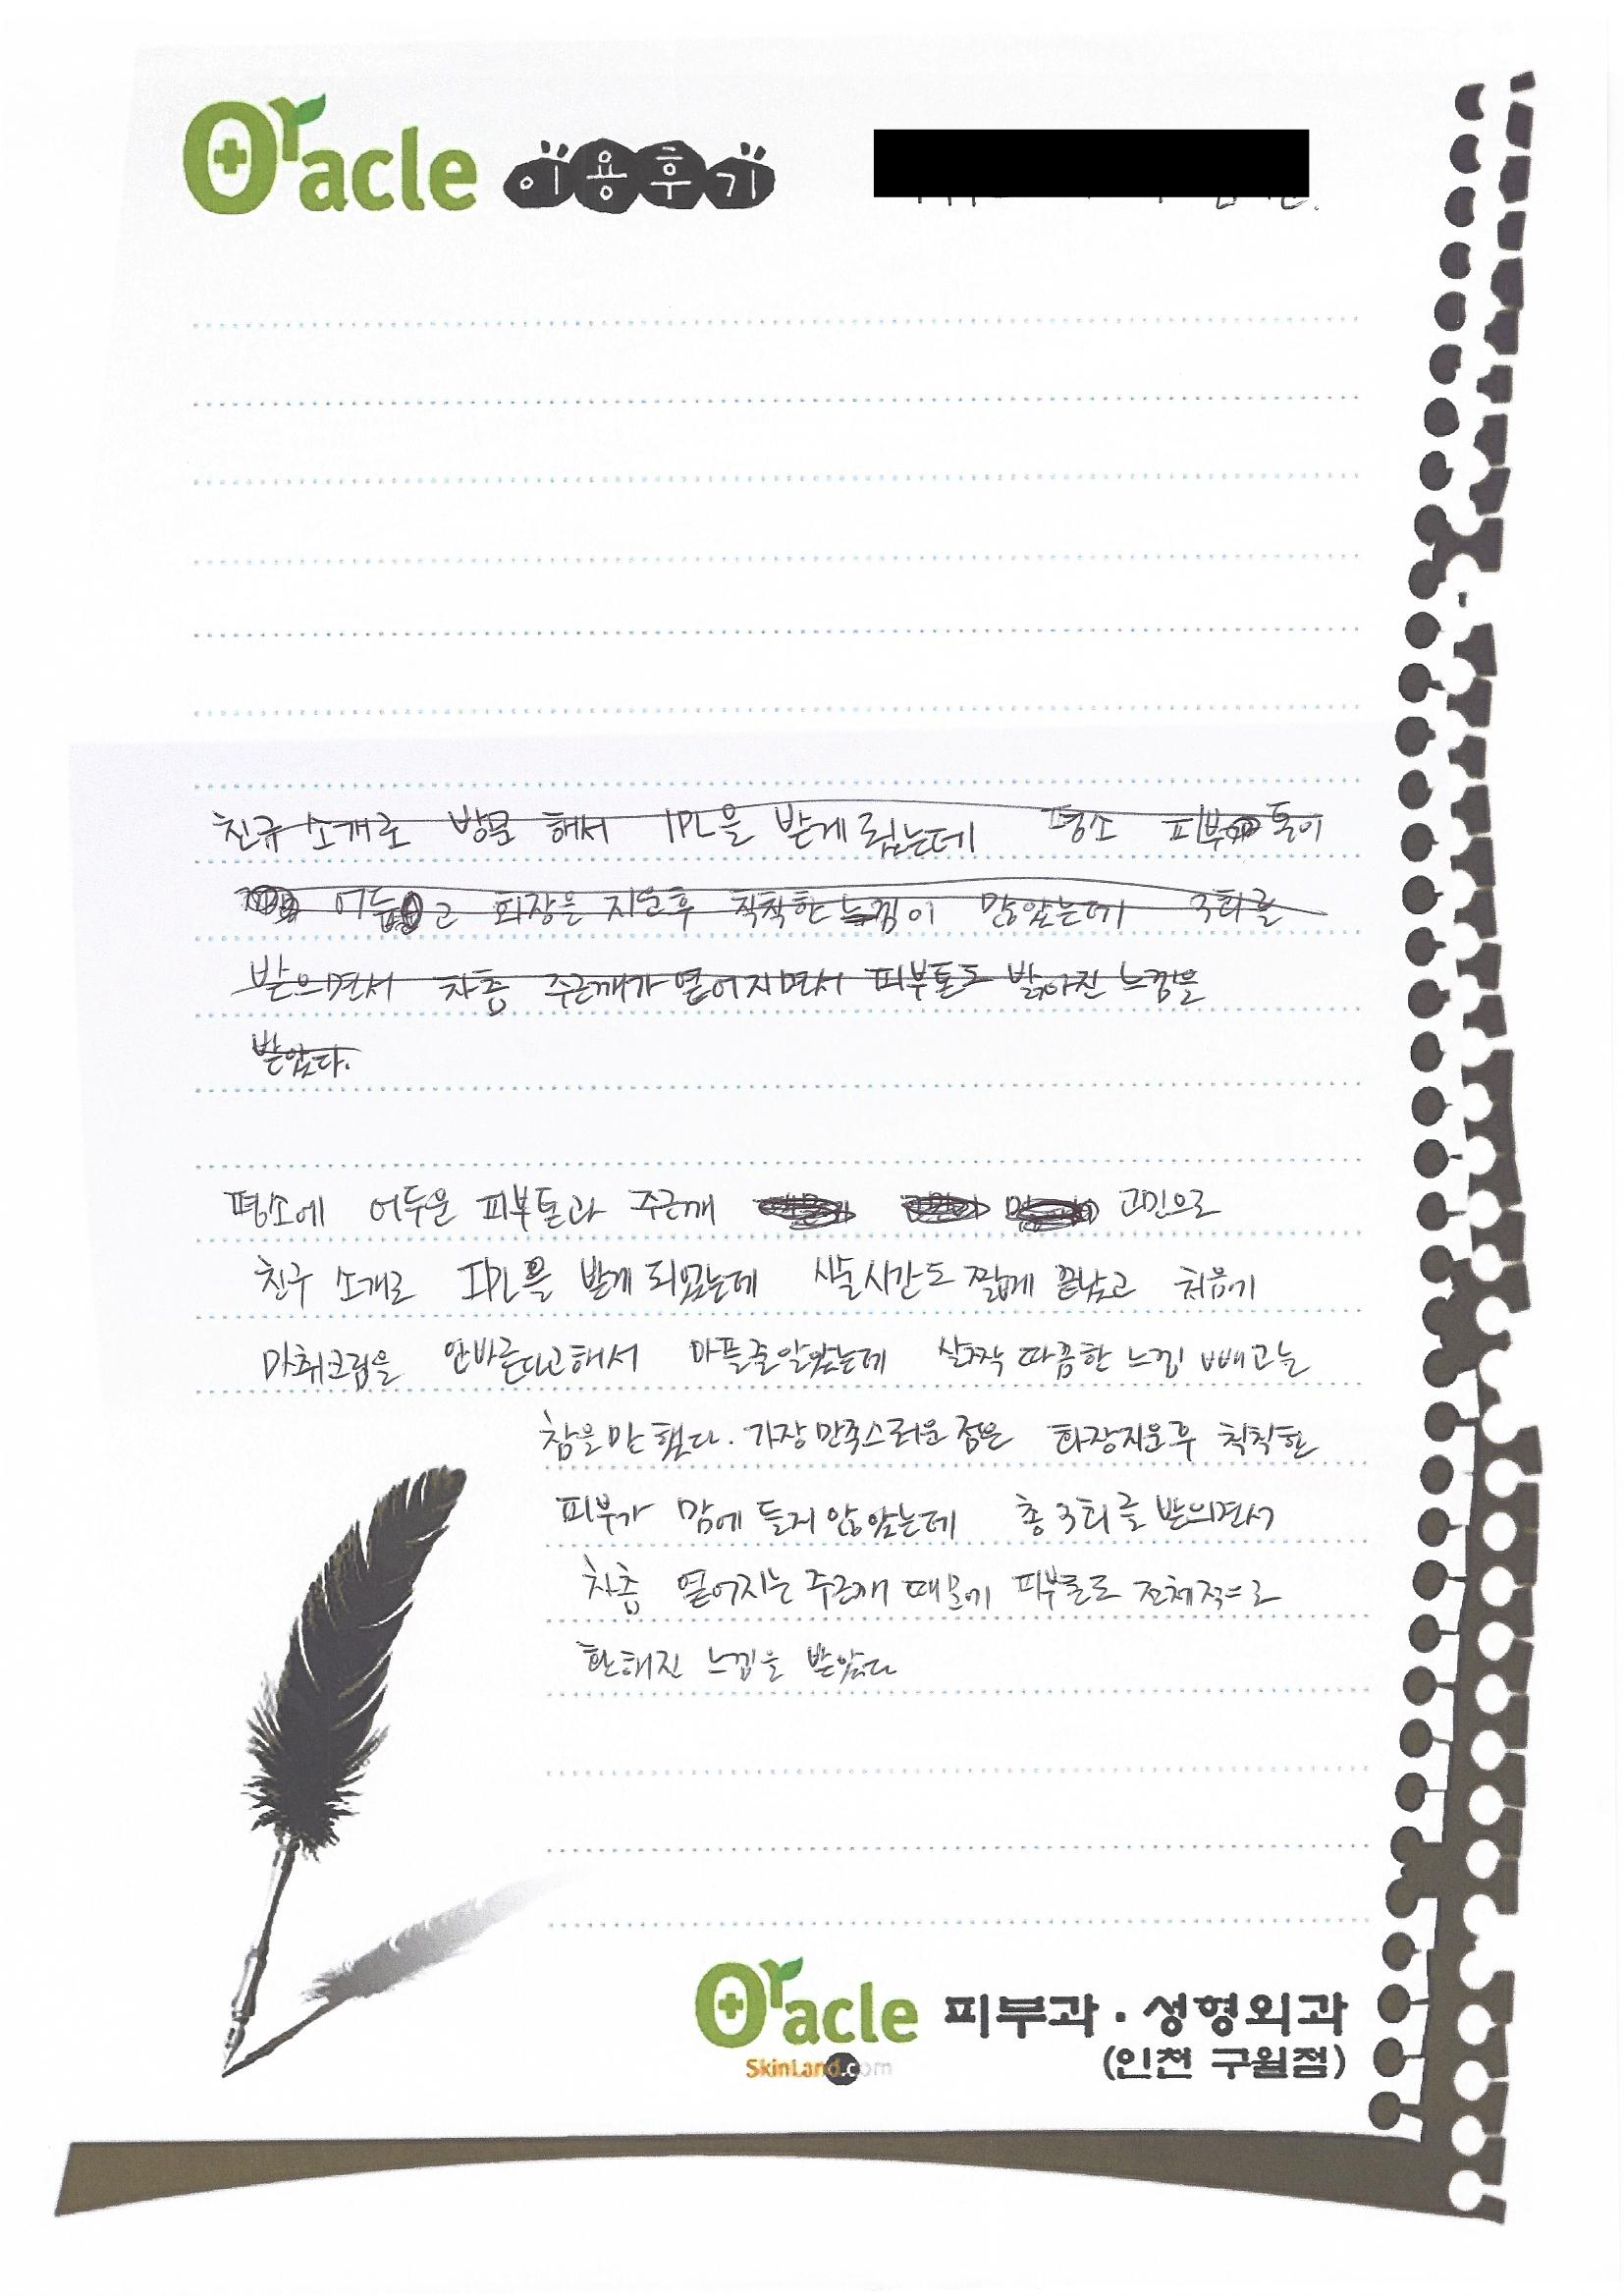 Oracle 이용후기
친규 소개로 방문 해서 IPL을 받게 됩는데 평소 피부 톤이
어둡고 화장은 지운후 칙칙한 느낌이 많았는데 3회를
받으면서 차츰 주근깨가 옅어지면서 피부톤도 밝아진 느낌을
받았다.
평소에 어두운 피부톤과 주근깨 고민으로
친구 소개로 IPL을 받게 되었는데 시술시간도 짧게 끝났고 처음에
마취크림을 안바른다고해서 아플줄알았는데 살짝 따끔한 느낌 빼고는
참을만 했다. 가장 만족스러운 점은 화장지운후 칙칙한
피부가 맘에 들지 않았는데 총 3회를 받의면서
차츰 옅어지는 주근깨 때문에 피부톤도 전체적으로
환해진 느낌을 받았다
Oracle 피부과 · 성형외과
SkinLand.com (인천 구월점)